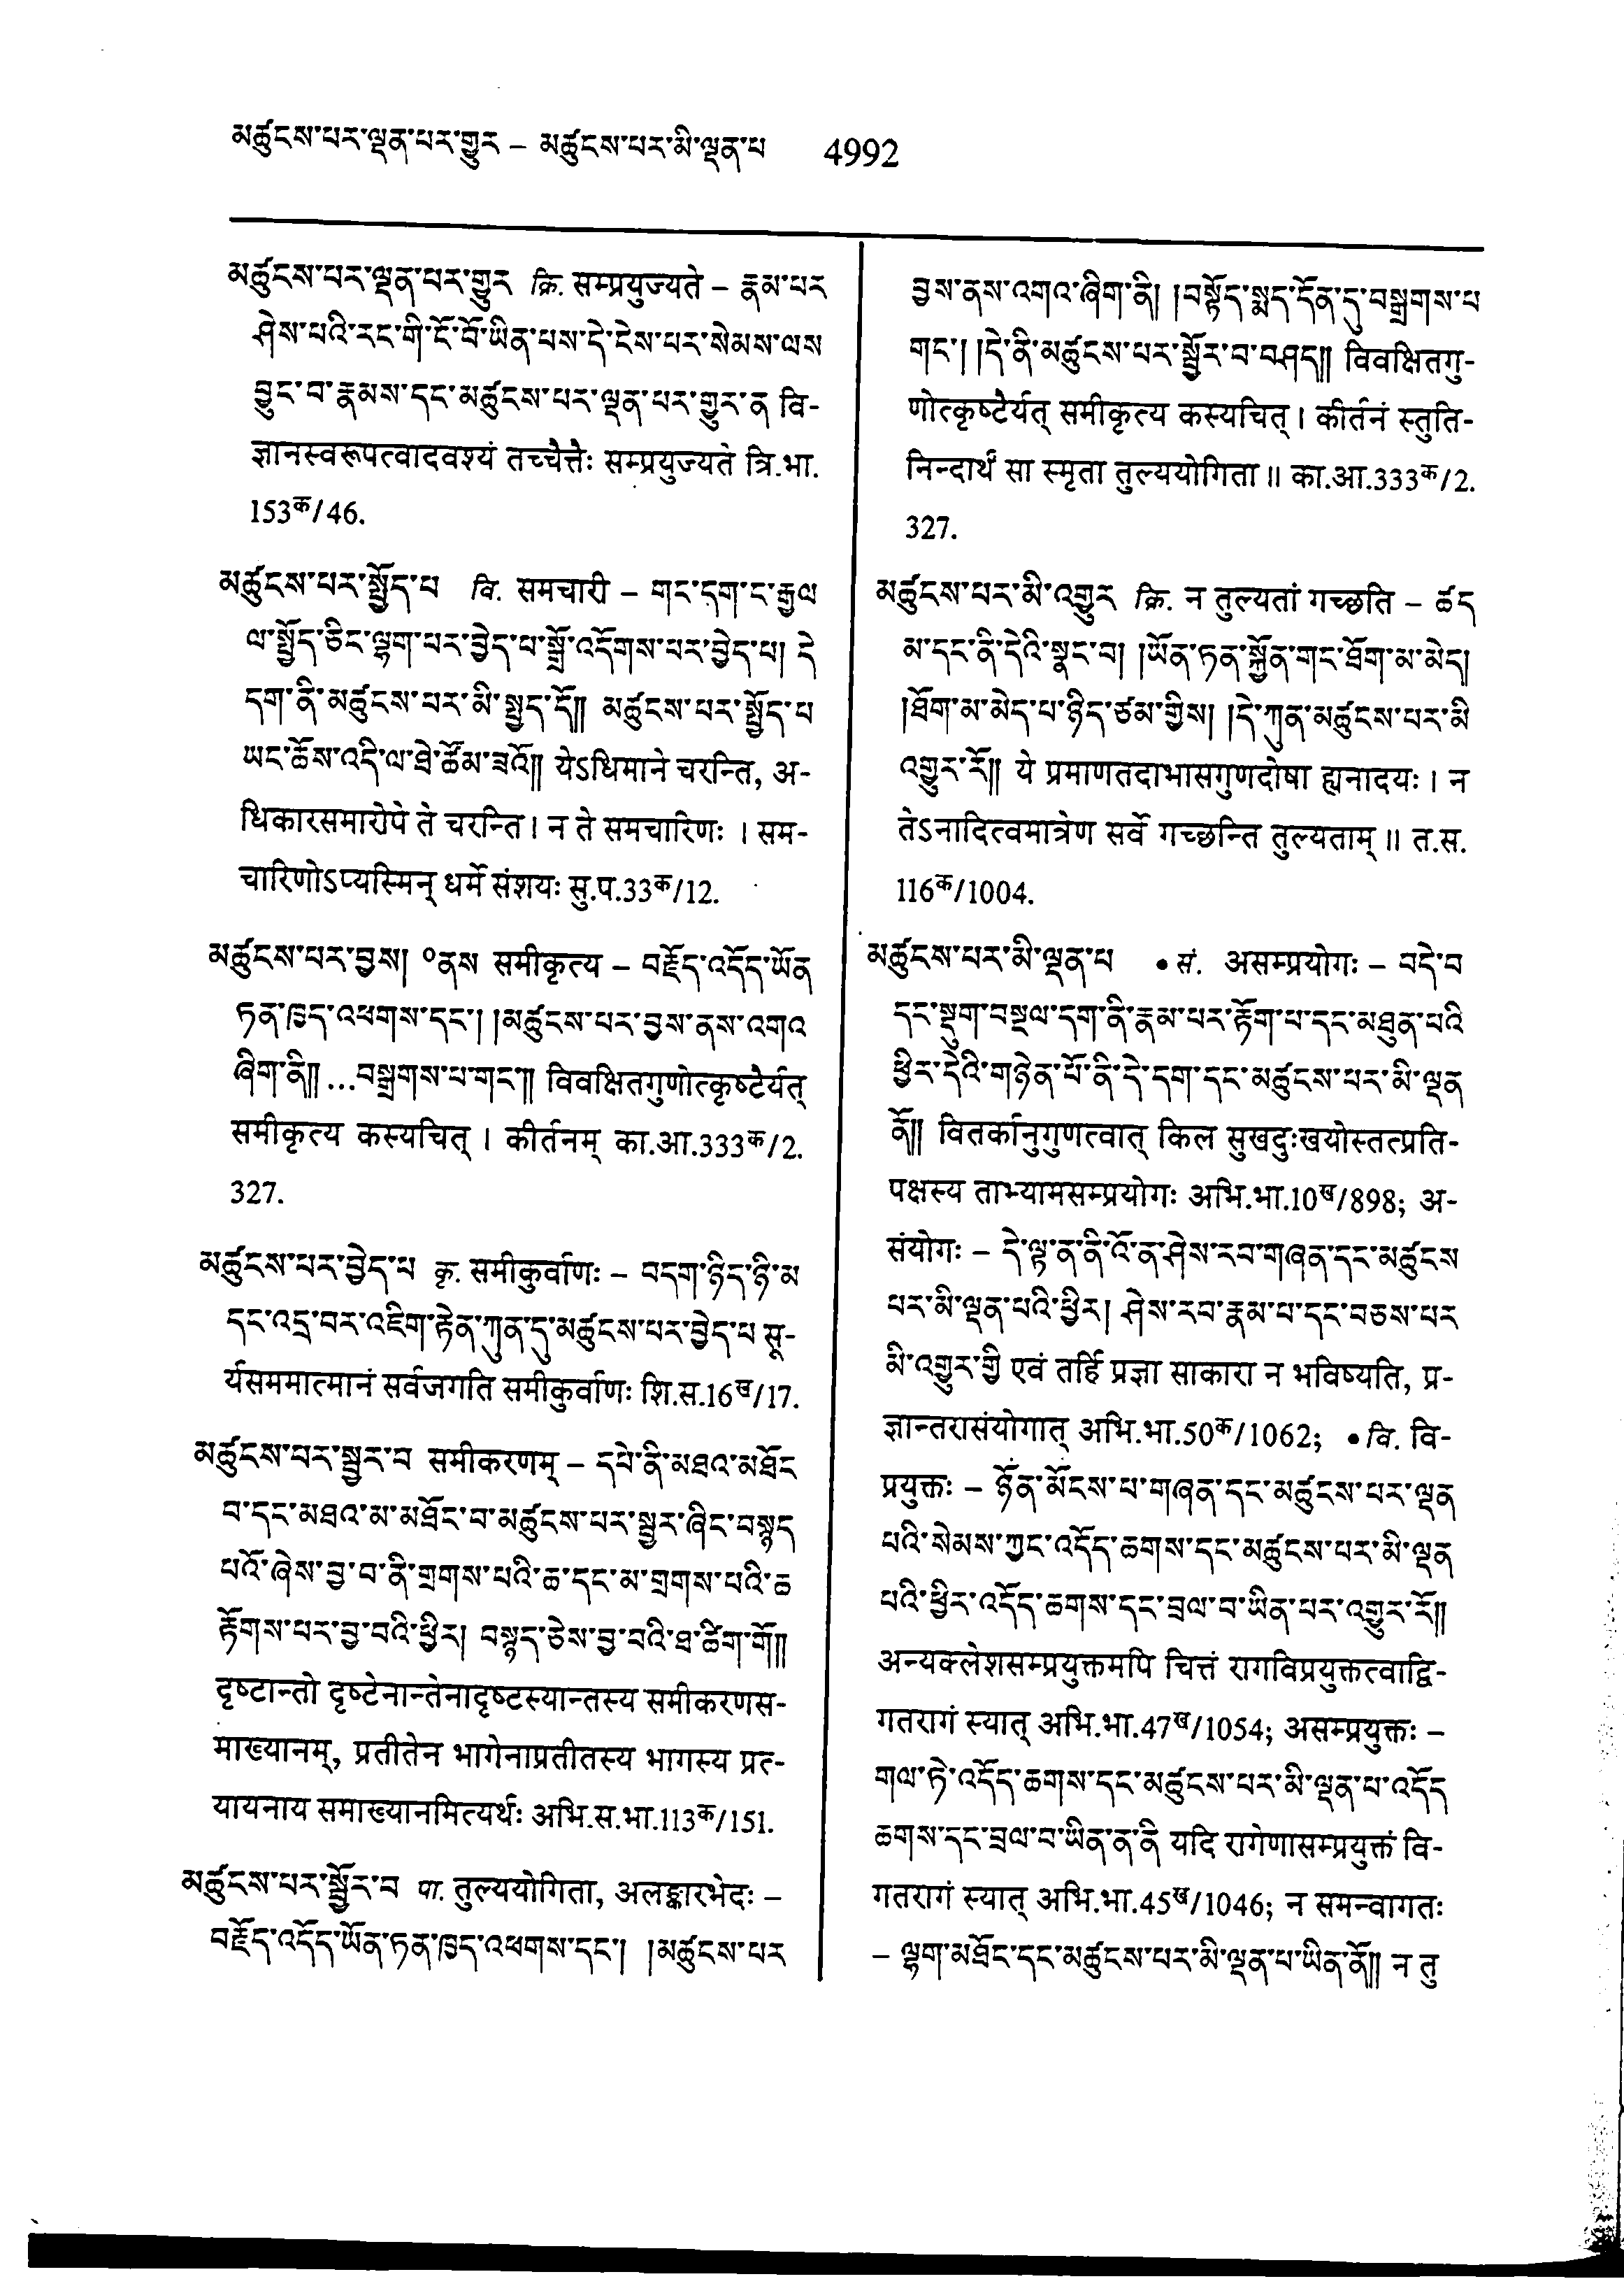 མཚུངས་པར་ལྡན་པར་གྱུར – མཚུངས་པར་མི་ལྡན་པ 4992
མཚུངས་པར་ལྡན་པར་གྱུར क्रि. सम्प्रयुज्यते – རྣམ་པར
ཤེས་པའི་རང་གི་ངོ་བོ་ཡིན་པས་དེ་ངེས་པར་སེམས་ལས
བྱུང་བ་རྣམས་དང་མཚུངས་པར་ལྡན་པར་གྱུར་ན वि-
ज्ञानस्वरूपत्वादवश्यं तच्चैत्तैः सम्प्रयुज्यते त्रि.भा.
153क/46.
མཚུངས་པར་སྤྱོད་པ वि. समचारी – གང་དག་ང་རྒྱལ
ལ་སྤྱོད་ཅིང་ལྷག་པར་བྱེད་པ་སྒྲོ་འདོགས་པར་བྱེད་པ། དེ
དག་ནི་མཚུངས་པར་མི་སྤྱད་དོ།། མཚུངས་པར་སྤྱོད་པ
ཡང་ཆོས་འདི་ལ་ཐེ་ཚོམ་ཟའོ།། येऽधिमाने चरन्ति, अ-
धिकारसमारोपे ते चरन्ति। न ते समचारिणः । सम-
चारिणोऽप्यस्मिन् धर्मे संशयः सु.प.33क/12.
མཚུངས་པར་བྱས། ༠ནས समीकृत्य – བརྗོད་འདོད་ཡོན
ཏན་ཁྱད་འཕགས་དང་། །མཚུངས་པར་བྱས་ནས་འགའ
ཞིག་ནི།། ...བསྒྲགས་པ་གང་།། विवक्षितगुणोत्कृष्टैर्यत्
समीकृत्य कस्यचित् । कीर्तनम् का.आ.333क/2.
327.
མཚུངས་པར་བྱེད་པ कृ. समीकुर्वाणः – བདག་ཉིད་ཉི་མ
དང་འདྲ་བར་འཇིག་རྟེན་ཀུན་ཏུ་མཚུངས་པར་བྱེད་པ सू-
र्यसममात्मानं सर्वजगति समीकुर्वाणः शि.स.16ख/17.
མཚུངས་པར་སྦྱར་བ समीकरणम् – དཔེ་ནི་མཐའ་མཐོང
བ་དང་མཐའ་མ་མཐོང་བ་མཚུངས་པར་སྦྱར་ཞིང་བསྙད
པའོ་ཞེས་བྱ་བ་ནི་གྲགས་པའི་ཆ་དང་མ་གྲགས་པའི་ཆ
རྟོགས་པར་བྱ་བའི་ཕྱིར། བསྙད་ཅེས་བྱ་བའི་ཐ་ཚིག་གོ།།
दृष्टान्तो दृष्टेनान्तेनादृष्टस्यान्तस्य समीकरणस-
माख्यानम्, प्रतीतेन भागेनाप्रतीतस्य भागस्य प्रत्-
यायनाय समाख्यानमित्यर्थः अभि.स.भा.113क/151.
མཚུངས་པར་སྦྱོར་བ पा. तुल्ययोगिता, अलङ्कारभेदः –
བརྗོད་འདོད་ཡོན་ཏན་ཁྱད་འཕགས་དང་། །མཚུངས་པར
བྱས་ནས་འགའ་ཞིག་ནི། །བསྟོད་སྨད་དོན་དུ་བསྒྲགས་པ
གང་། །དེ་ནི་མཚུངས་པར་སྦྱོར་བ་བཤད།། विवक्षितगु-
णोत्कृष्टैर्यत् समीकृत्य कस्यचित् । कीर्तनं स्तुति-
निन्दार्थं सा स्मृता तुल्ययोगिता ॥ का.आ.333क/2.
327.
མཚུངས་པར་མི་འགྱུར क्रि. न तुल्यतां गच्छति – ཚད
མ་དང་ནི་དེའི་སྣང་བ། །ཡོན་ཏན་སྐྱོན་གང་ཐོག་མ་མེད།
།ཐོག་མ་མེད་པ་ཉིད་ཙམ་གྱིས། །དེ་ཀུན་མཚུངས་པར་མི
འགྱུར་རོ།། ये प्रमाणतदाभासगुणदोषा ह्यनादयः । न
तेऽनादित्वमात्रेण सर्वे गच्छन्ति तुल्यताम् ॥ त.स.
116क/1004.
མཚུངས་པར་མི་ལྡན་པ • सं. असम्प्रयोगः – བདེ་བ
དང་སྡུག་བསྔལ་དག་ནི་རྣམ་པར་རྟོག་པ་དང་མཐུན་པའི
ཕྱིར་དེའི་གཉེན་པོ་ནི་དེ་དག་དང་མཚུངས་པར་མི་ལྡན
ནོ།། वितर्कानुगुणत्वात् किल सुखदुःखयोस्तत्प्रति-
पक्षस्य ताभ्यामसम्प्रयोगः अभि.भा.10ख/898; अ-
संयोगः – དེ་ལྟ་ན་ནི་འོ་ན་ཤེས་རབ་གཞན་དང་མཚུངས
པར་མི་ལྡན་པའི་ཕྱིར། ཤེས་རབ་རྣམ་པ་དང་བཅས་པར
མི་འགྱུར་གྱི एवं तर्हि प्रज्ञा साकारा न भविष्यति, प्र-
ज्ञान्तरासंयोगात् अभि.भा.50क/1062; • वि. वि-
प्रयुक्तः – ཉོན་མོངས་པ་གཞན་དང་མཚུངས་པར་ལྡན
པའི་སེམས་ཀྱང་འདོད་ཆགས་དང་མཚུངས་པར་མི་ལྡན
པའི་ཕྱིར་འདོད་ཆགས་དང་བྲལ་བ་ཡིན་པར་འགྱུར་རོ།།
अन्यक्लेशसम्प्रयुक्तमपि चित्तं रागविप्रयुक्तत्वाद्वि-
गतरागं स्यात् अभि.भा.47ख/1054; असम्प्रयुक्तः –
གལ་ཏེ་འདོད་ཆགས་དང་མཚུངས་པར་མི་ལྡན་པ་འདོད
ཆགས་དང་བྲལ་བ་ཡིན་ན་ནི यदि रागेणासम्प्रयुक्तं वि-
गतरागं स्यात् अभि.भा.45ख/1046; न समन्वागतः
– ལྷག་མཐོང་དང་མཚུངས་པར་མི་ལྡན་པ་ཡིན་ནོ།། न तु